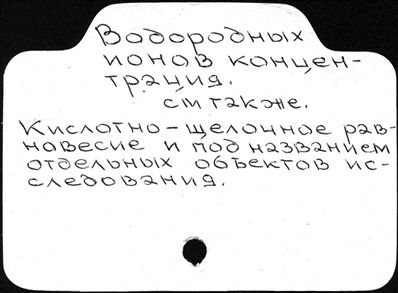 Водородных
ионов концен-
трация.
см также.
Кислотно-щелочное рав-
новесие и под названием
отдельных объектов ис-
следования.